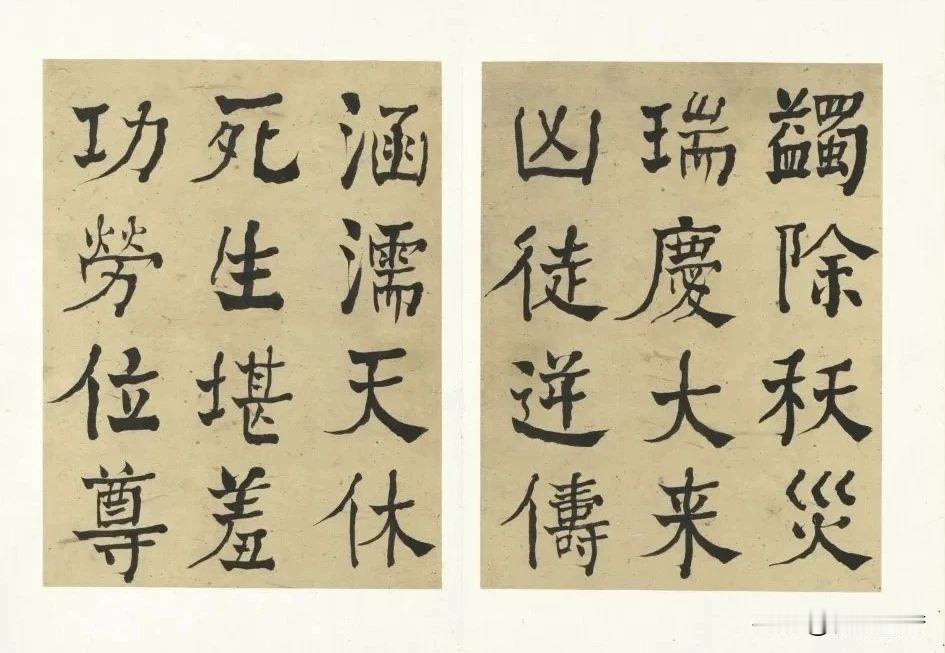 蠲除祅災
瑞慶大来
凶徒逆儔
涵濡天休
死生堪羞
功勞位尊